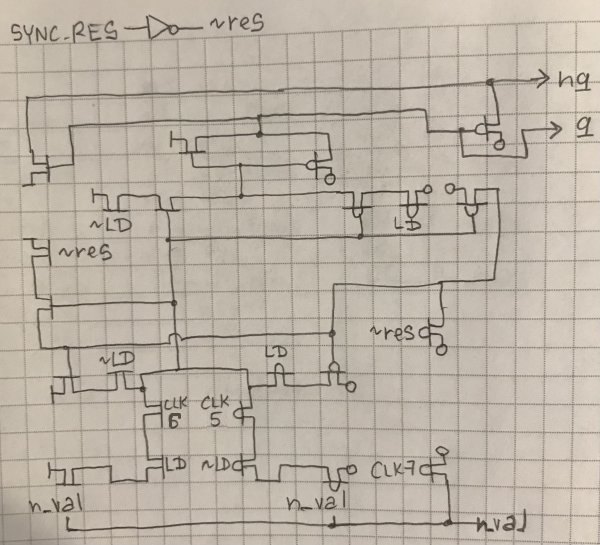 SYNC_RES ~res
nq
q
~LD LD
~res
~res
~LD LD
CLK CLK
6 5
LD ~LD CLK7
n_val n_val
n_val